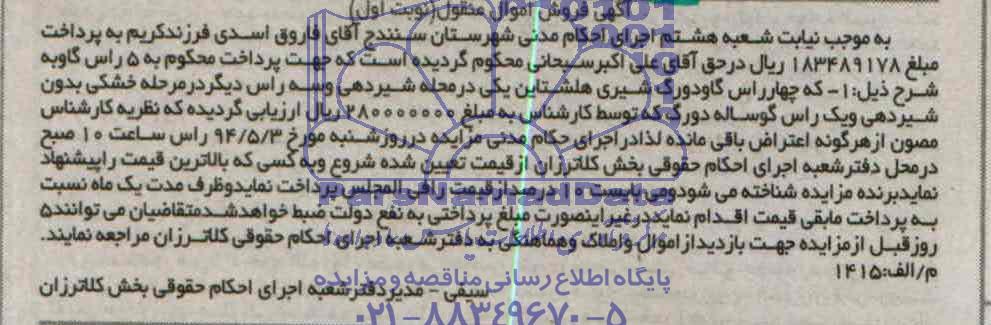 آگهی فروش اموال منقول(نوبت اول)
به موجب نیابت شعبه هشتم اجرای احکام مدنی شهرستان سنندج آقای فاروق اسدی فرزندکریم به پرداخت
مبلغ ۱۸۳۴۸۹۱۷۸ ریال درحق آقای علی اکبرسبحانی محکوم گردیده است که جهت پرداخت محکوم به ۵ راس گاوبه
شرح ذیل:۱- که چهارراس گاودورگ شیری هلشتاین یکی درمحله شیردهی وسه راس دیگردرمرحله خشکی بدون
شیردهی ویک راس گوساله دورگ که توسط کارشناس به مبلغ ۲۸۰۰۰۰۰۰۰ ریال ارزیابی گردیده که نظریه کارشناس
مصون ازهرگونه اعتراض باقی مانده لذادراجرای حکام مدنی مزایده درروزشنبه مورخ ۹۴/۵/۳ راس ساعت ۱۰ صبح
درمحل دفترشعبه اجرای احکام حقوقی بخش کلاترزان ازقیمت تعیین شده شروع وبه کسی که بالاترین قیمت راپیشنهاد
نمایدبرنده مزایده شناخته می شودومی بایست ۱۰ درصدازقیمت رافی المجلس پرداخت نمایدوظرف مدت یک ماه نسبت
به پرداخت مابقی قیمت اقدام نمایددرغیراینصورت مبلغ پرداختی به نفع دولت ضبط خواهدشدمتقاضیان می توانند۵
روزقبل ازمزایده جهت بازدیدازاموال واملاک وهماهنگی به دفترشعبه اجرای احکام حقوقی کلاترزان مراجعه نمایند.
م/الف:۱۴۱۵
سیفی - مدیردفترشعبه اجرای احکام حقوقی بخش کلاترزان
ParsNamadData
پایگاه اطلاع رسانی مناقصه ومزایده
۰۲۱-۸۸۳۴۹۶۷۰-۵